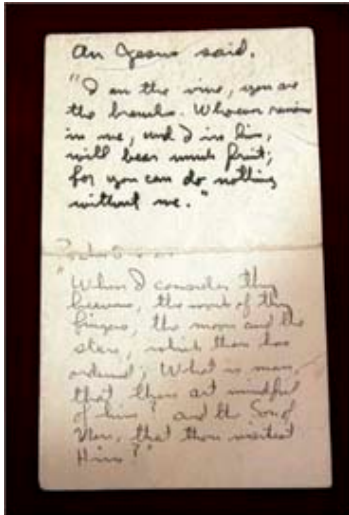 As Jesus said,
"I am the vine, you are
the branches. Whoever remains
in me, and I in him,
will bear much fruit;
for you can do nothing
without me."
"When I consider thy
heavens, the work of thy
fingers, the moon and the
stars, which thou has
ordained; What is man,
that thou art mindful
of him? and the Son of
Man, that thou visitest
Him?"